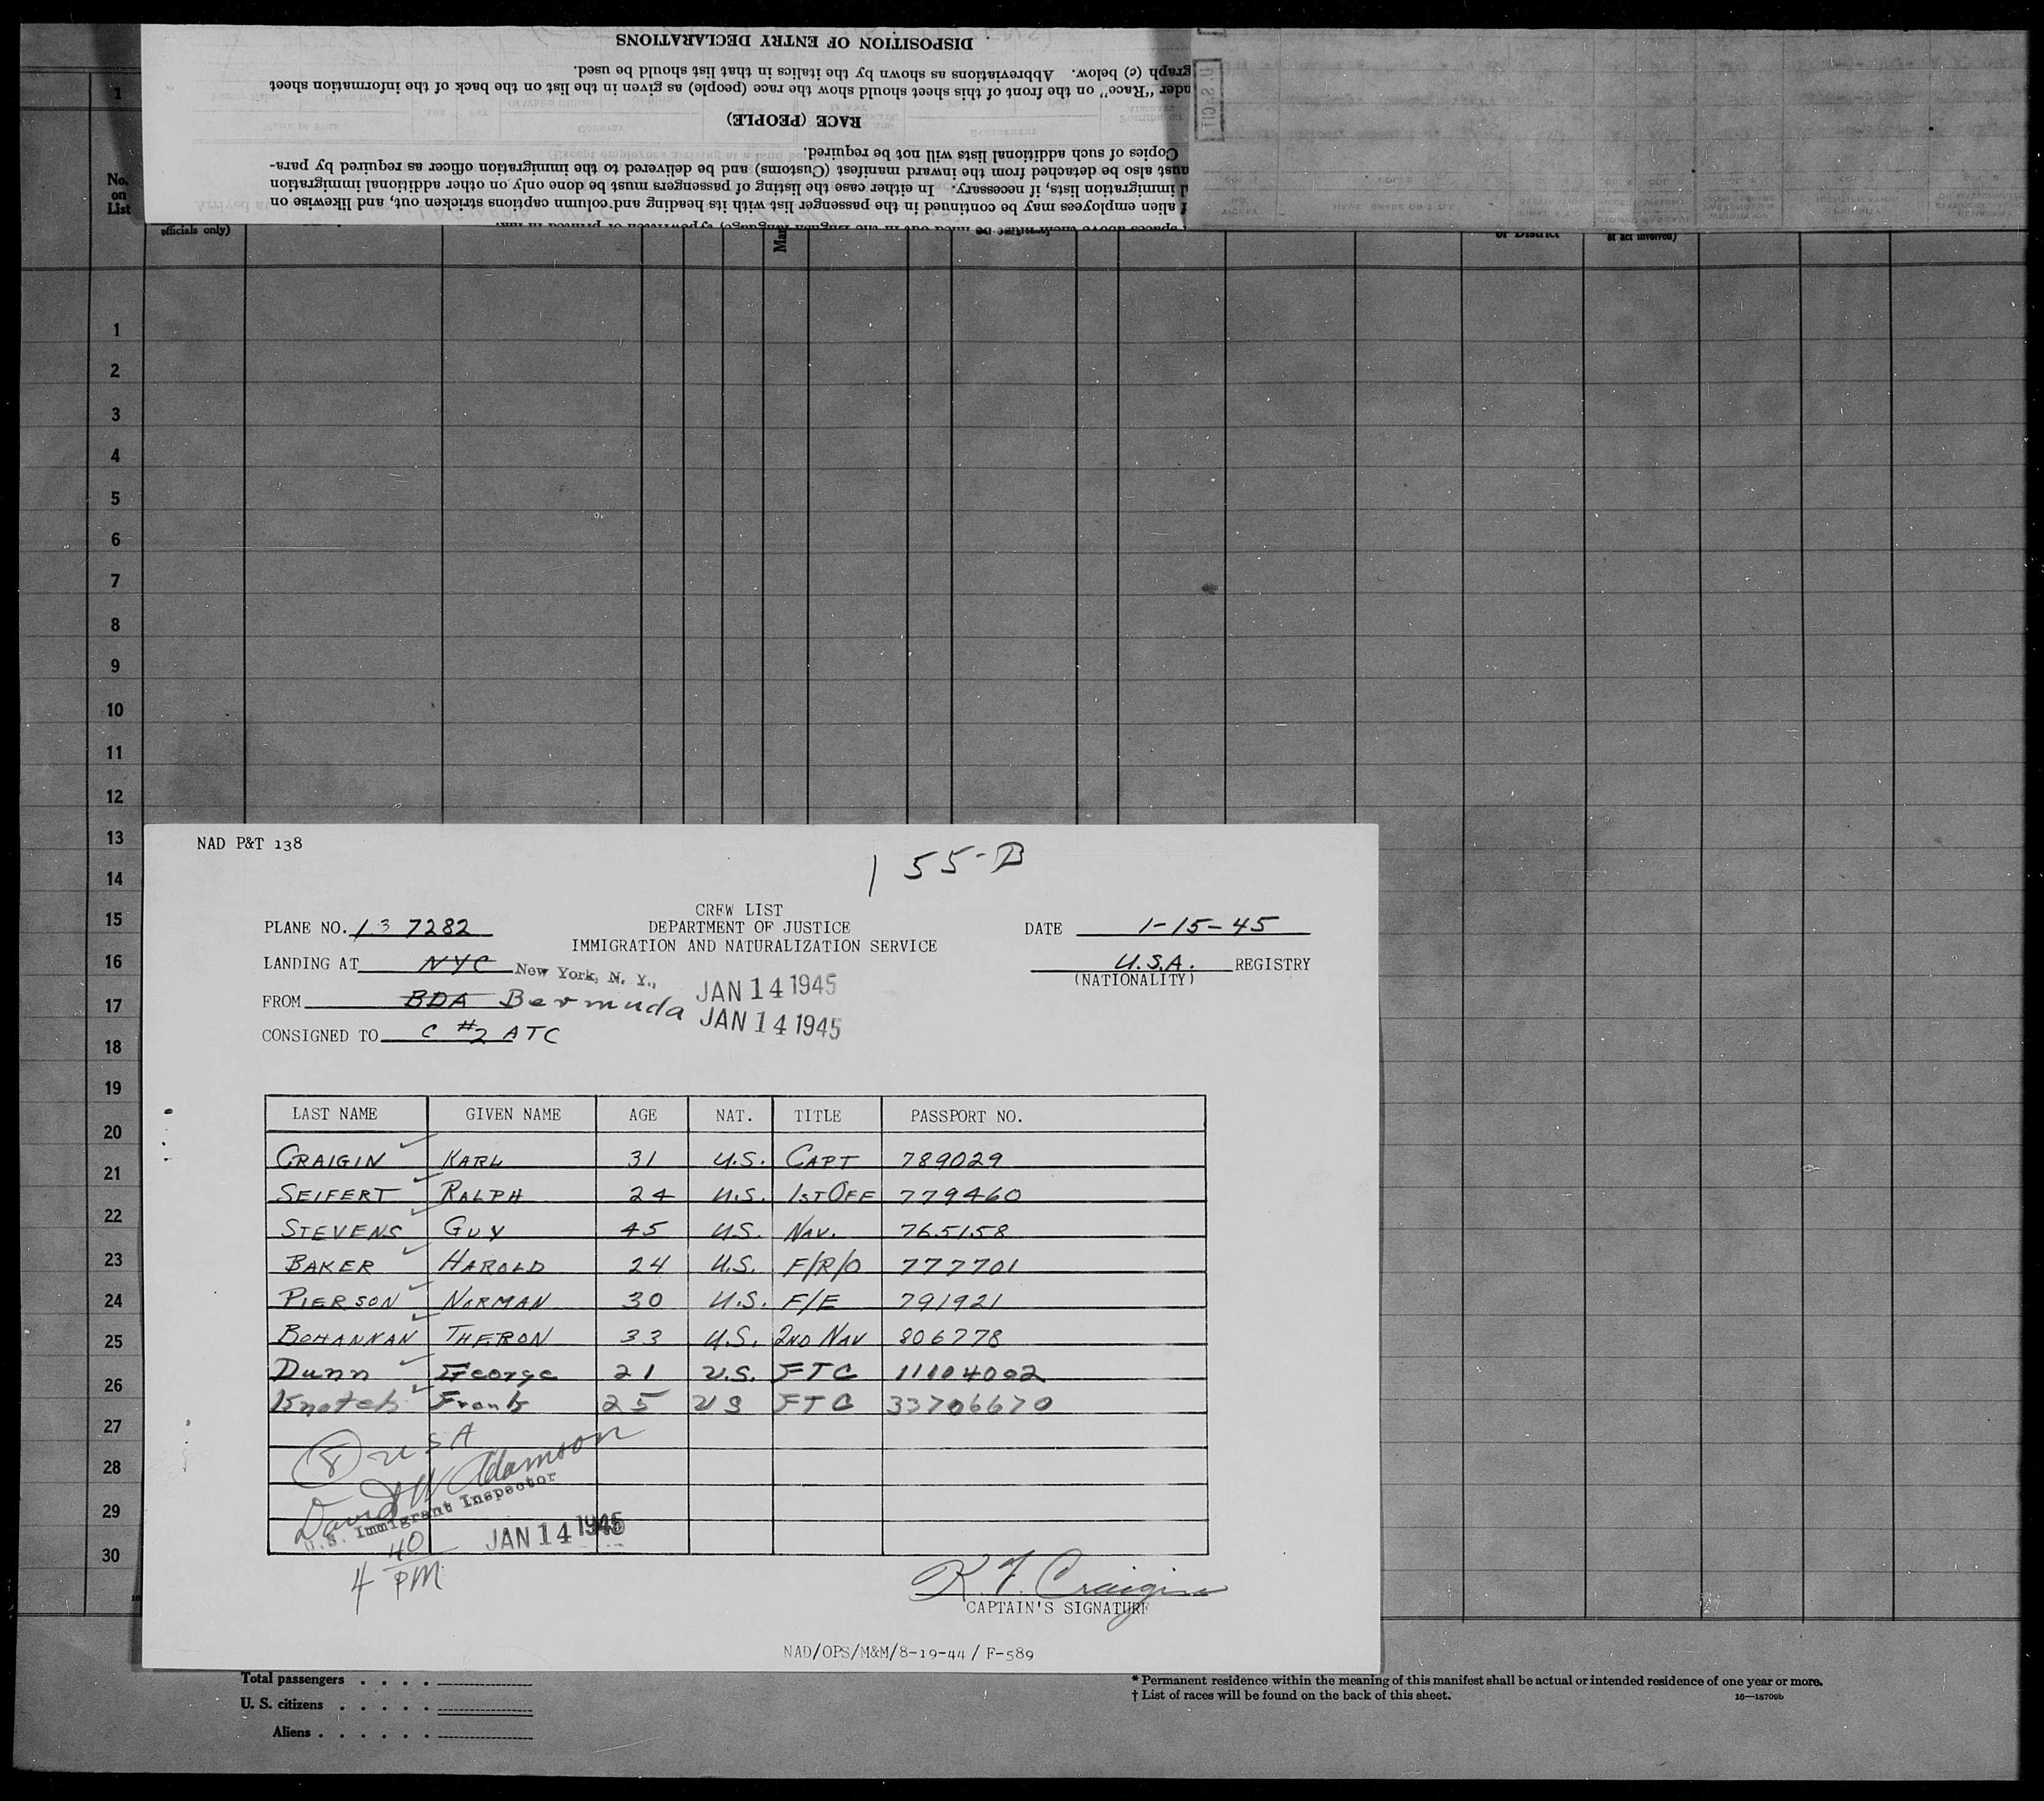 DISPOSITION OF ENTRY DECLARATIONS
graph (c) below. Abbreviations as shown by the italics in that list should be used.
nder "Race" on the front of this sheet should show the race (people) as given in the list on the back of the information sheet
RACE (PEOPLE)
Copies of such additional lists will not be required.
must also be detached from the inward manifest (Customs) and be delivered to the immigration officer as required by para-
d immigration lists, if necessary. In either case the listing of passengers must be done only on other additional immigration
f alien employees may be continued in the passenger list with its heading and column captions stricken out, and likewise on
1
No. on List
officials only)
Mar
or District
of act involved)
1
2
3
4
5
6
7
8
9
10
11
12
13
14
15
16
17
18
19
20
21
22
23
24
25
26
27
28
29
30
NAD P&T 138
155-B
CREW LIST
PLANE NO. 13 7282 DEPARTMENT OF JUSTICE DATE 1-15-45
IMMIGRATION AND NATURALIZATION SERVICE
LANDING AT NYC New York, N. Y., JAN 14 1945 U.S.A. REGISTRY
(NATIONALITY)
FROM BDA Bermuda JAN 14 1945
CONSIGNED TO C #2 ATC
LAST NAME GIVEN NAME AGE NAT. TITLE PASSPORT NO.
CRAIGIN KARL 31 U.S. CAPT 789029
SEIFERT RALPH 24 U.S. 1ST OFF 779460
STEVENS GUY 45 U.S. NAV. 765158
BAKER HAROLD 24 U.S. F/R/O 777701
PIERSON NORMAN 30 U.S. F/E 791921
BOHANKAN THERON 33 U.S. 2ND NAV 806778
Dunn George 21 U.S. FTC 11104002
Frank 25 US FTC 33706670
8 USA
David W Adamson
U.S. Immigrant Inspector
JAN 14 1945
4 40 PM
K. F. Craigin
CAPTAIN'S SIGNATURE
NAD/OPS/M&M/8-19-44 / F-589
Total passengers . . . .
U. S. citizens . . . . .
Aliens . . . . . .
* Permanent residence within the meaning of this manifest shall be actual or intended residence of one year or more.
† List of races will be found on the back of this sheet. 16—18709b